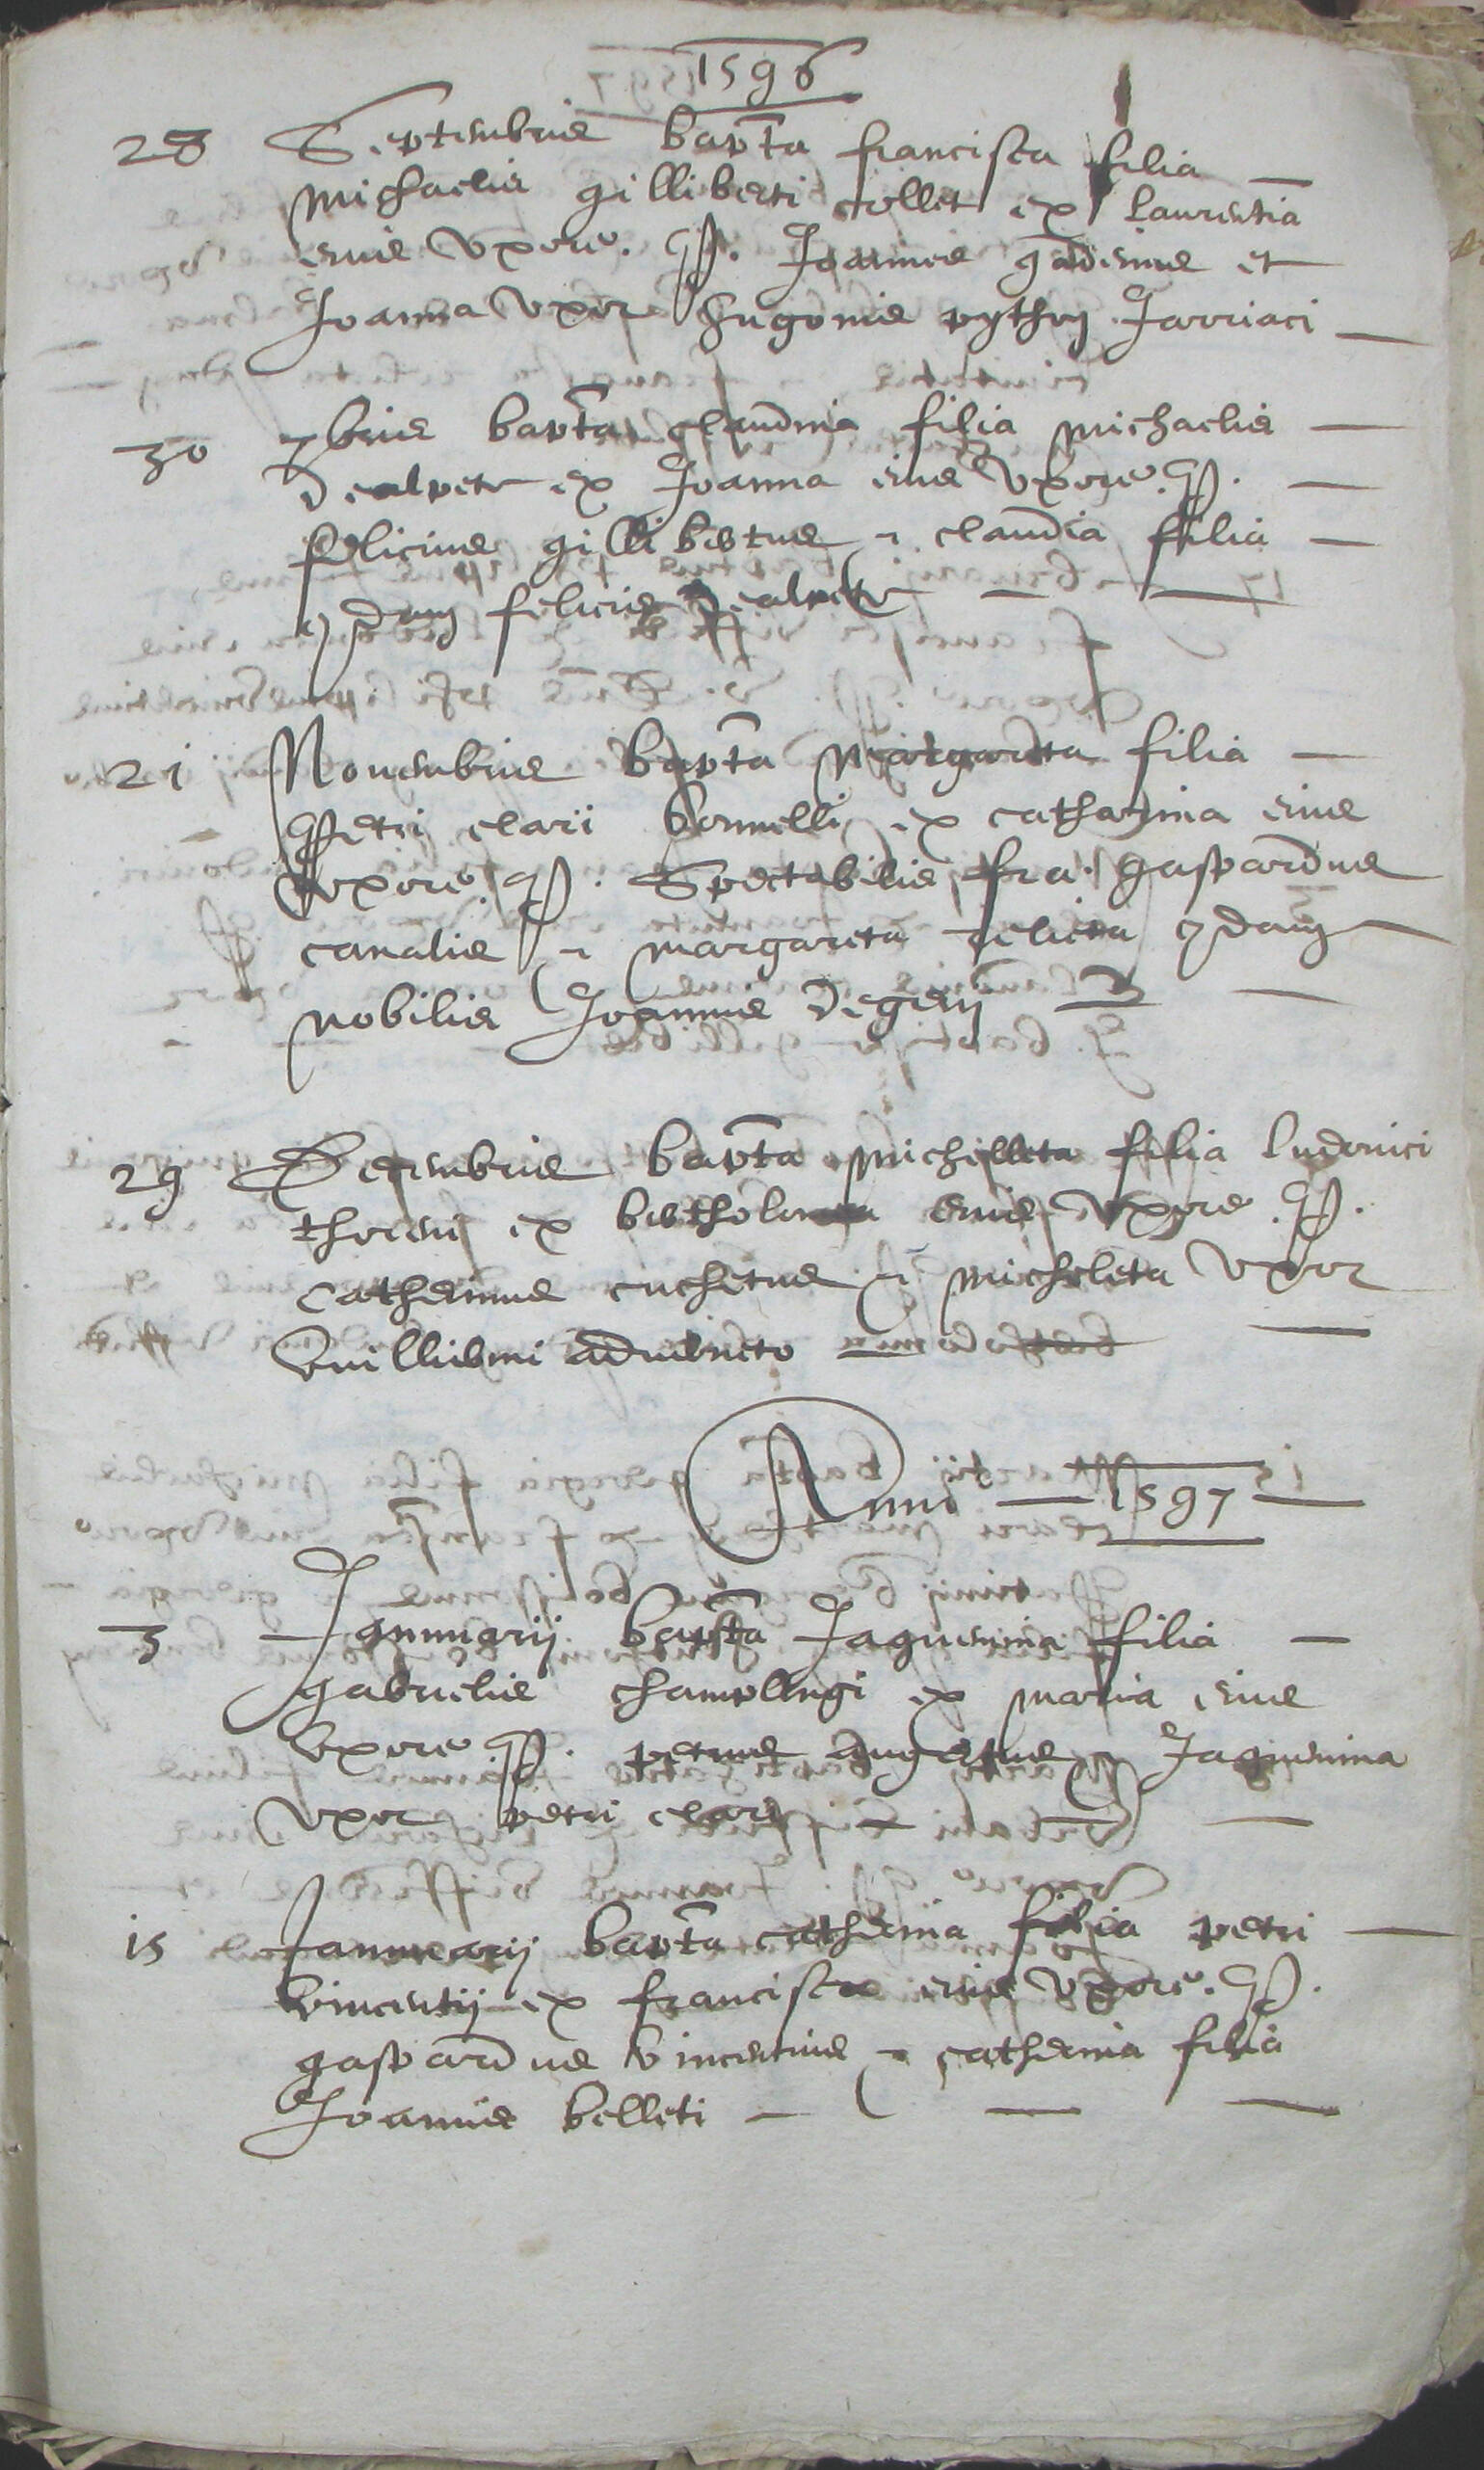 1596
28 Septembris bapta francisca filia
michaelis gilliberti collet ex laurentia
eius uxore. pp. Joannes gadenius et
Joanna uxor hugonis pythoy Jarriaci
30 7bris bapta claudina filia michaelis
dealpet ex Joanna eius uxore. pp.
felicius gillibertus z claudia filia
qdam felicis dealpet
21 Nouembris bapta margareta filia
petri clari bonnelli ex catharina eius
uxore. pp. Spectabilis fra. gaspardus
canalis z margareta relicta qdam
nobilis Joannis degerii
29 Decembris bapta michilleta filia ludouici
thoreni ex bertholomea eius uxore. pp.
catherinus cuchetus z micheleta uxor
Vuillielmi
Anni 1597
3 Januarij bapta Jaquemina filia
gabrielis champlingi ex maria eius
uxore pp. petrus z Jaquemina
uxor petri clari
15 Januarij bapta catherina filia petri
vincentij ex francisca eius uxore. pp.
gaspardus vincentius z catherina filia
Joannis belleti